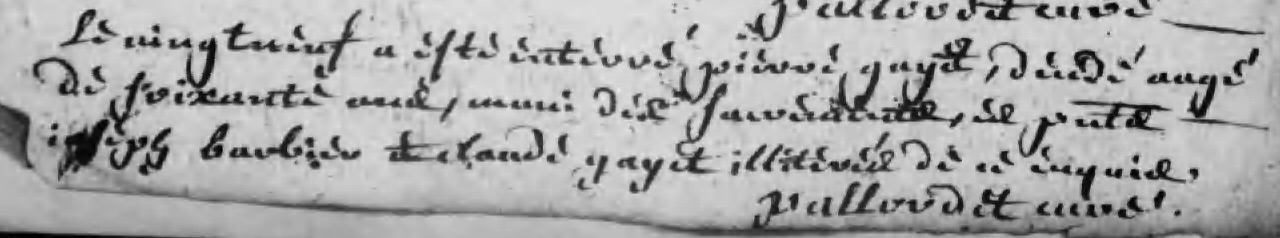 pallordet curé
Le vingtneuf a esté enterré pierre gayet, decedé aagé
de soixante ans, muni des sacrements, es pnts
joseph barbier et claude gayet illiterés de ce enquis,
pallordet curé.